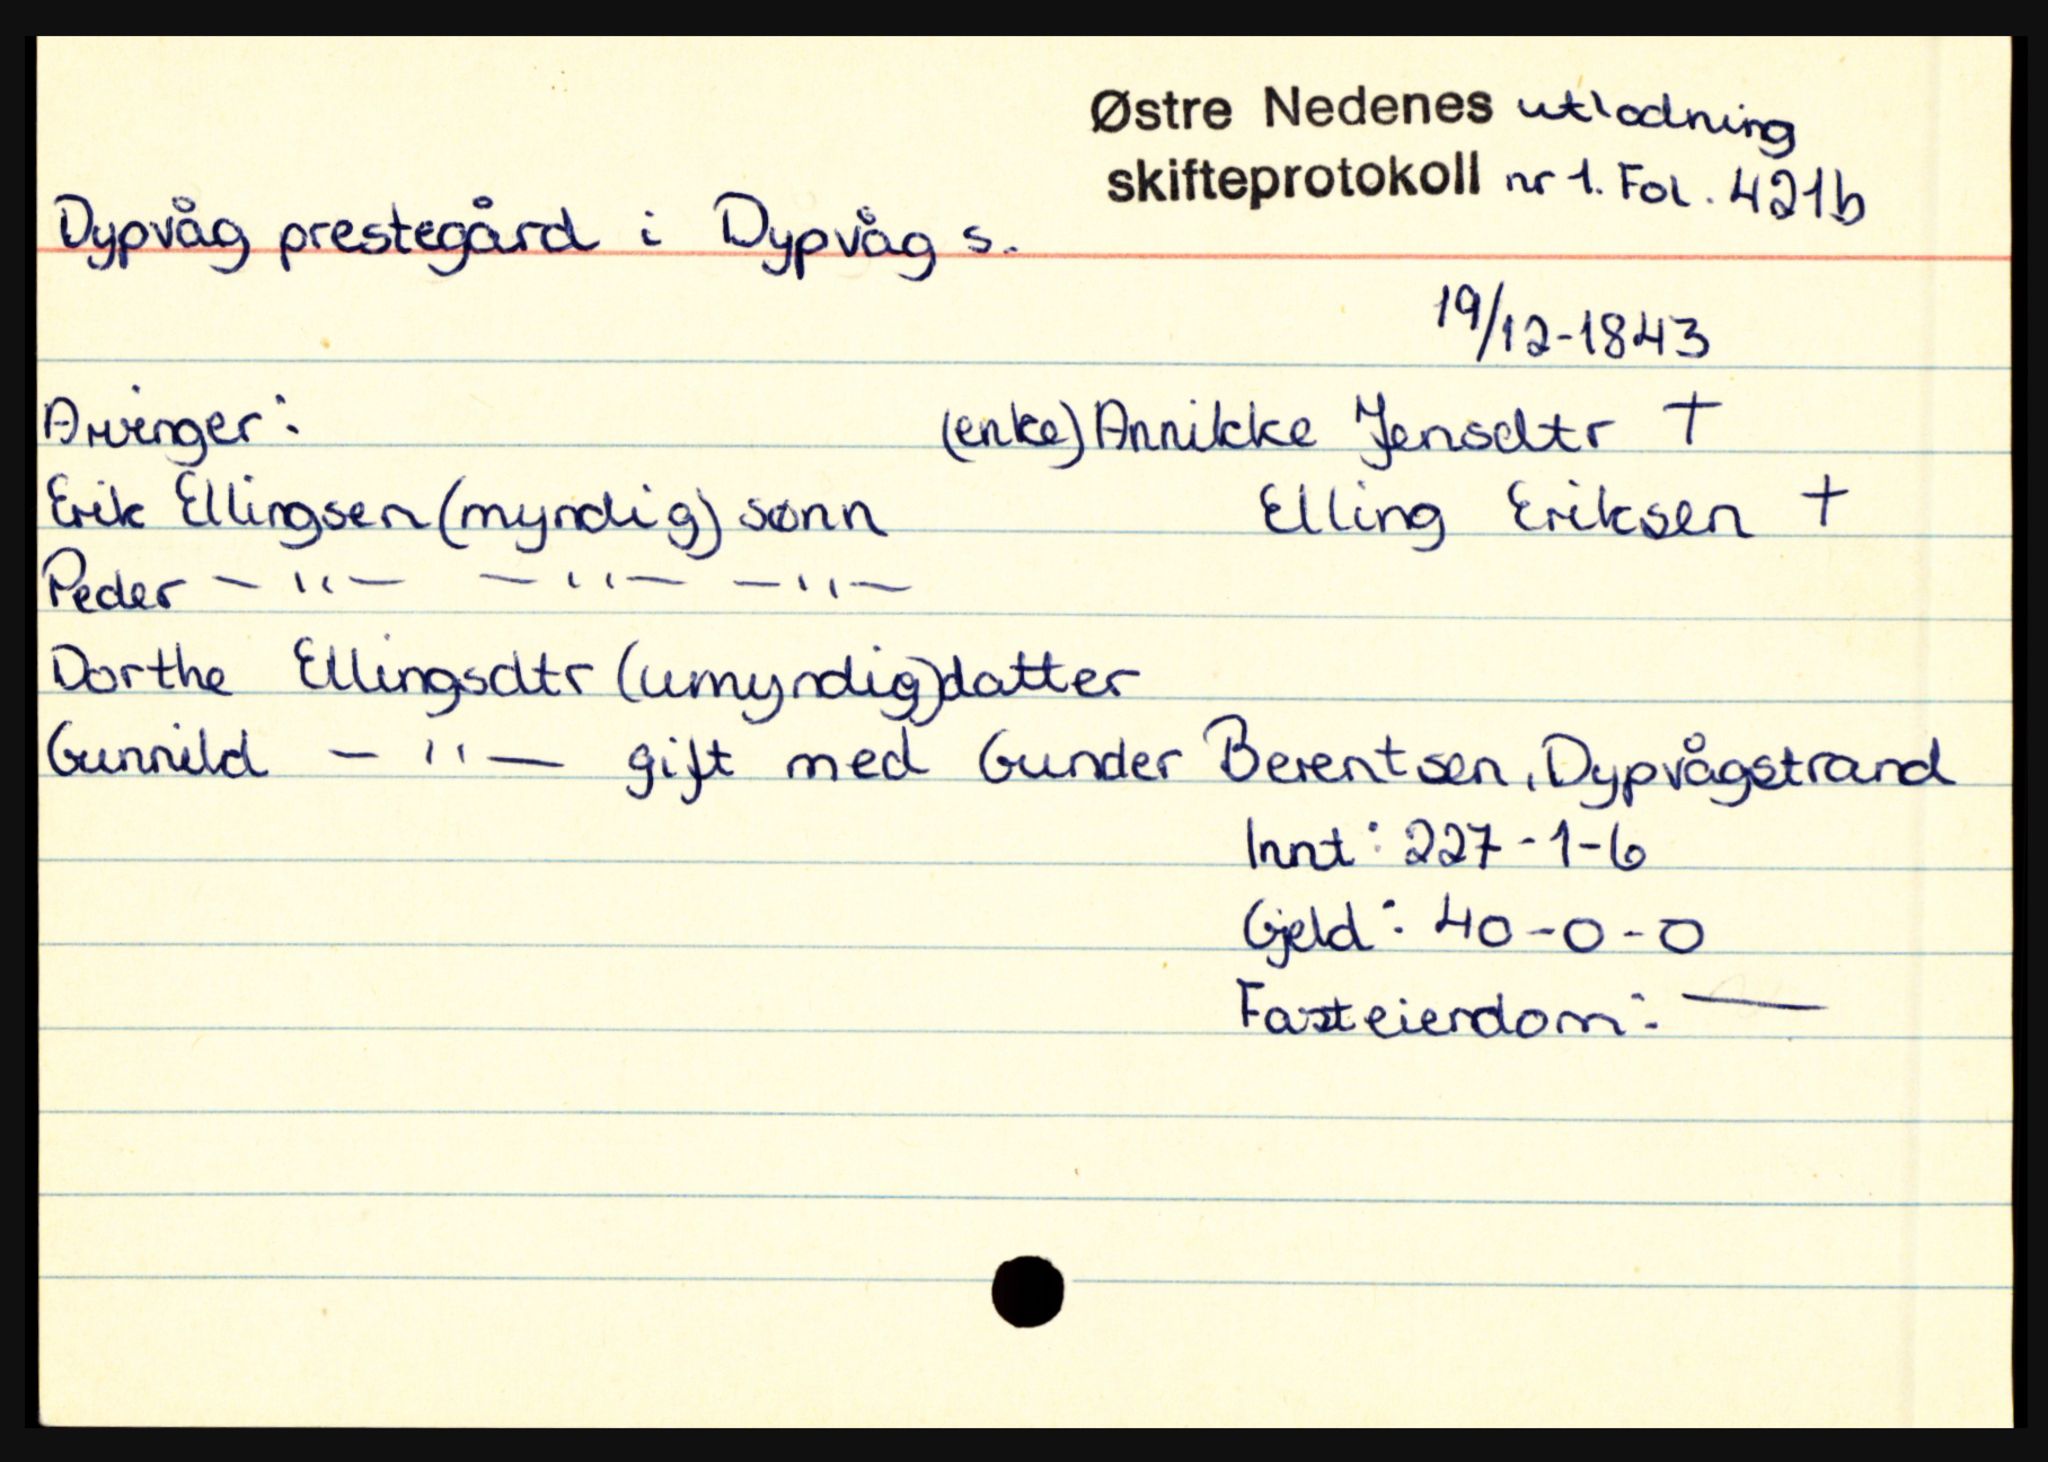 Østre Nedenes utlodning
skifteprotokoll nr 1. Fol. 421b
Dypvåg prestegård i Dypvåg s.
19/12-1843
Arvinger: (enke) Annikke Jensdtr †
Erik Ellingsen (myndig) sønn Elling Eriksen †
Peder – " – – " – – " –
Dorthe Ellingsdtr (umyndig) datter
Gunnild – " – gift med Gunder Berentsen, Dypvågstrand
Innt: 227-1-6
Gjeld: 40-0-0
Fasteiendom: —